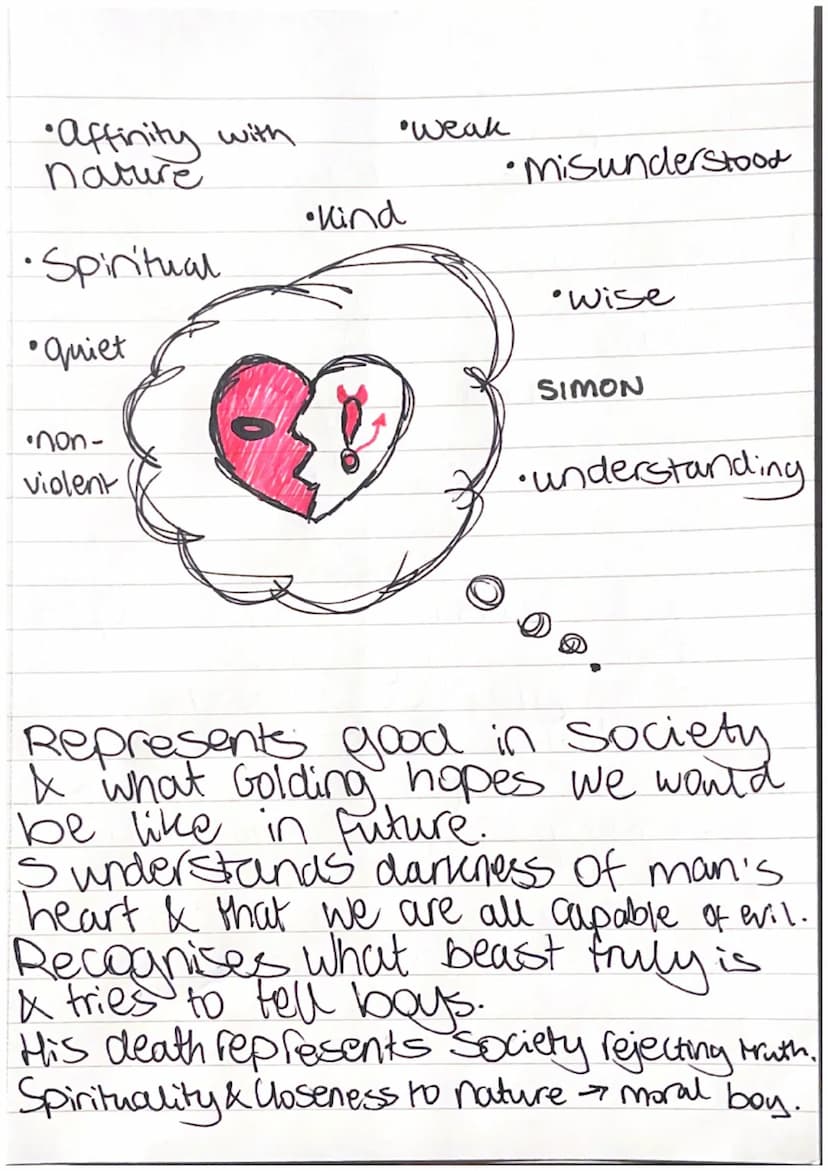 •Affinity with
nature
•weak
•misunderstood
•kind
•Spiritual
•wise
•quiet
SIMON
•non-
violent
•understanding
Represents good in society
& what Golding hopes we would
be like in future.
S understands darkness of man's
heart & that we are all capable of evil.
Recognises what beast truly is
& tries to tell boys.
His death represents society rejecting truth.
Spirituality & closeness to nature → moral boy.